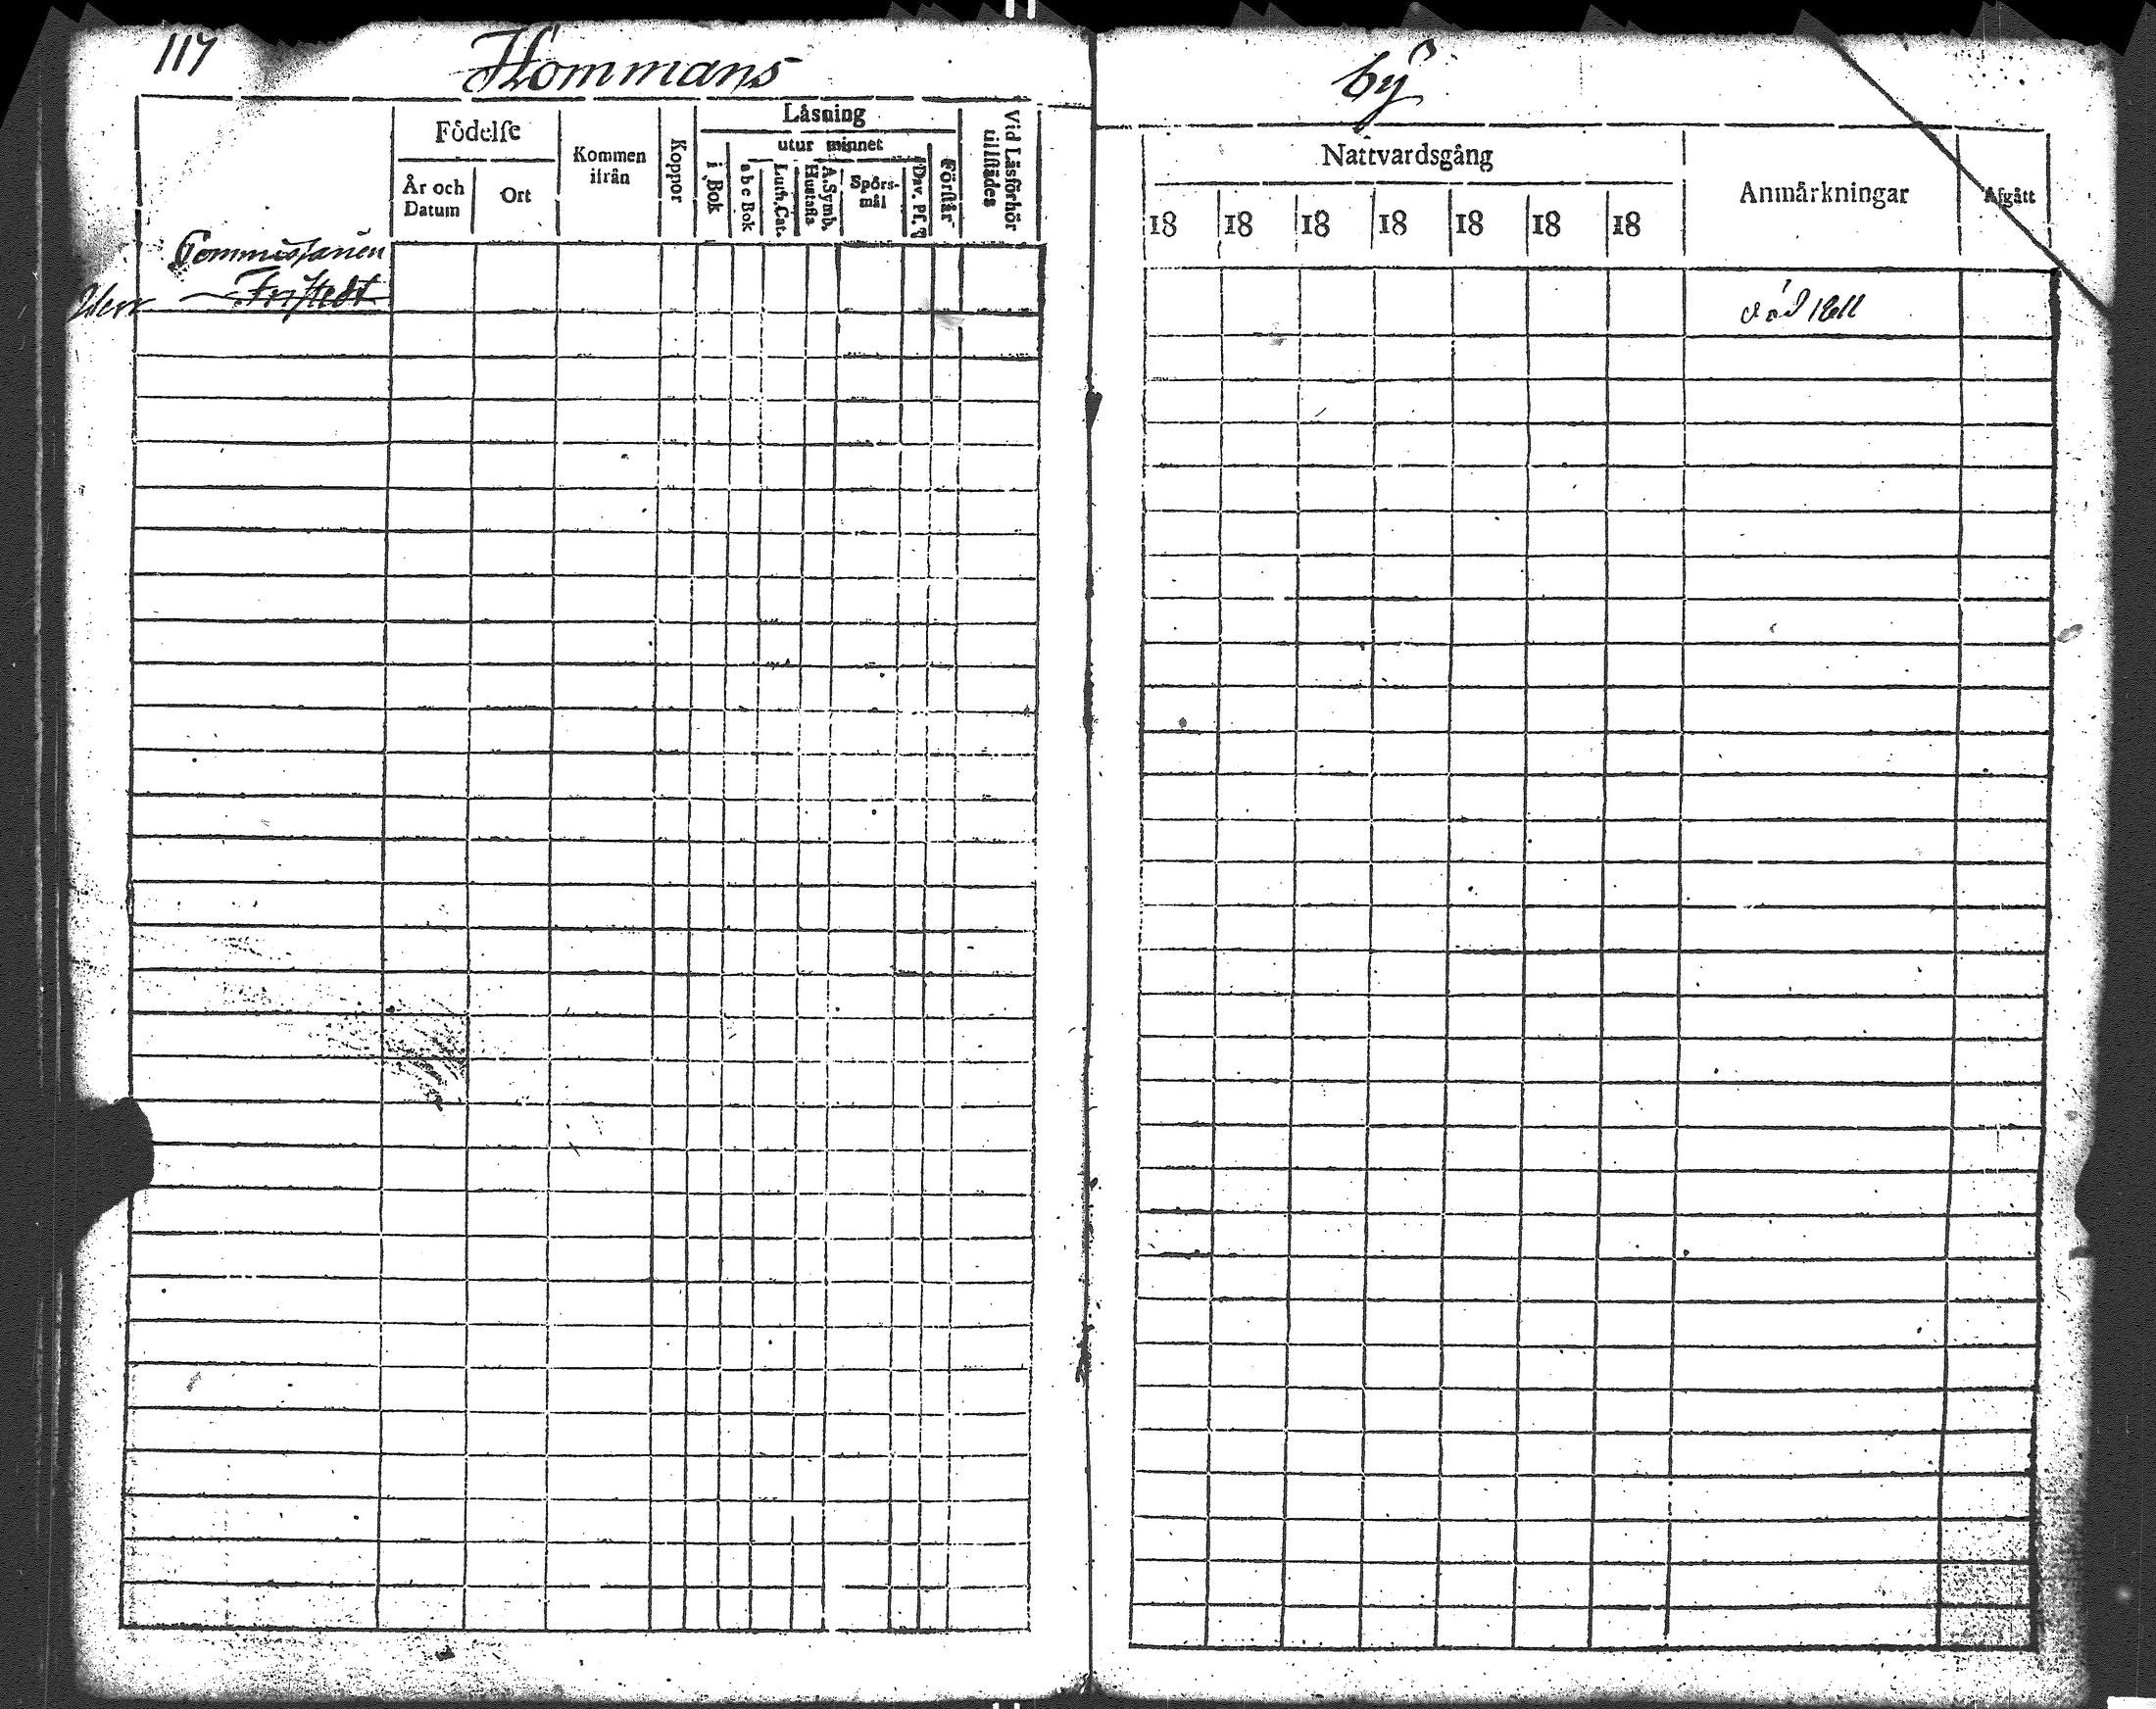 117
Hommans by
Födelse
År och Datum
Ort
Kommen ifrån
Koppor
Läsning
i Bok
utur minnet
a b c Bok
Luth. Cat.
A. Symb. Hustafla
Spörsmål
Dav. Ps.
Förstår
Vid Läsförhör tillstädes
Nattvardsgång
18 18 18 18 18 18 18
Anmärkningar
Afgått
Commissarien
Herr Fristedt
död 1811